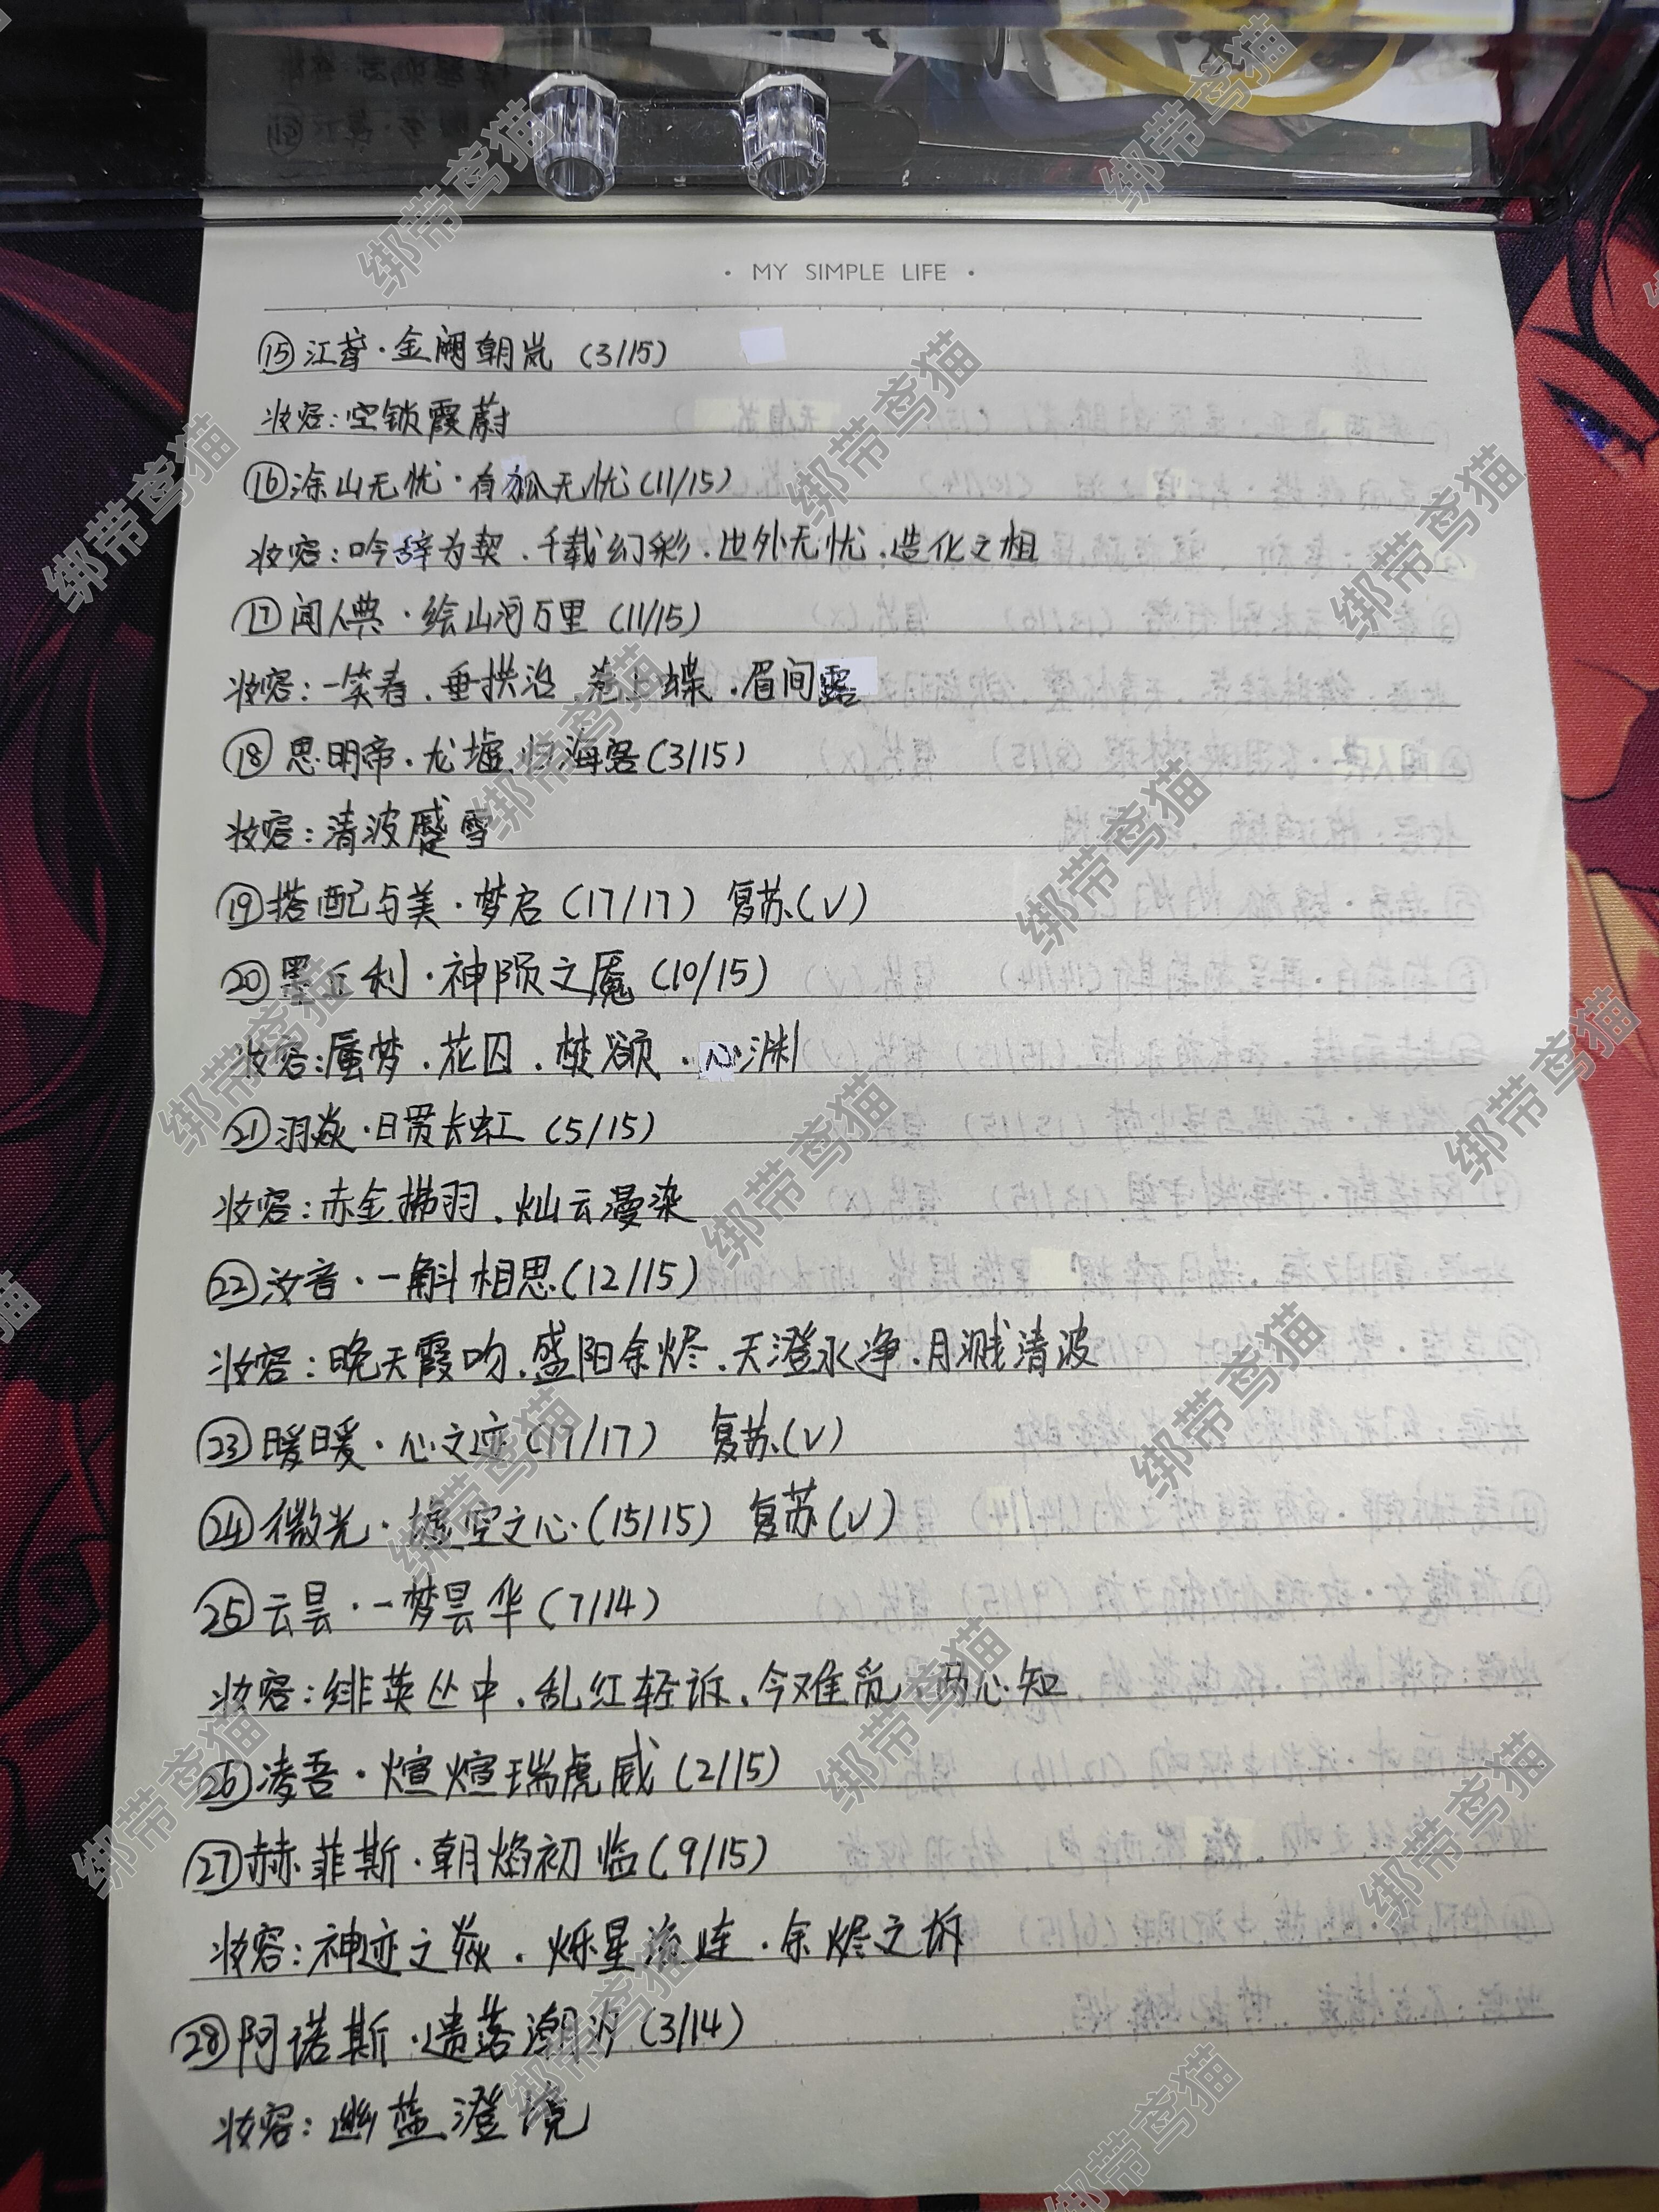 · MY SIMPLE LIFE ·
⑮江鸢·金阙朝岚(3/15)
妆容:空锁霞蔚
⑯涂山无忧·有狐无忧(11/15)
妆容:吟辞为契.千载幻彩.世外无忧.造化之相
⑰闻人典·绘山河万里(11/15)
妆容:一笑春.垂拱治 上蝶.眉间露
⑱思明帝·龙墟归海客(3/15)
妆容:清波蹙雪
⑲搭配与美·梦启(17/17) 复苏(√)
⑳墨丘利·神陨之魇(10/15)
妆容:蜃梦.花囚.焚欲.心渊
㉑羽焱·日贯长虹(5/15)
妆容:赤金拂羽.灿云漫染
㉒汝音·一斛相思(12/15)
妆容:晚天霞吻.盛阳余烬.天澄水净.月溅清波
㉓暖暖·心之迹(17/17) 复苏(√)
㉔微光·虚空之心(15/15) 复苏(√)
㉕云昙·一梦昙华(7/14)
妆容:绯英丛中.乱红轻诉.今难觅.两心知
㉖凌吾·煊煊瑞虎威(2/15)
㉗赫菲斯·朝焰初临(9/15)
妆容:神迹之焱.烁星流连.余烬之拆
㉘阿诺斯·遗落潮汐(3/14)
妆容:幽蓝澄境
绑带鸢猫